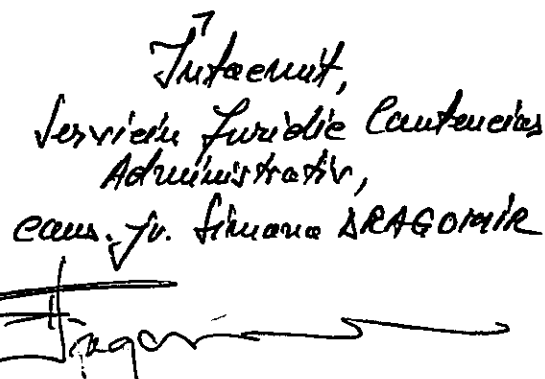 Întocmit,
Serviciu Juridic Contencios
Administrativ,
cons. jr. Simona DRAGOMIR